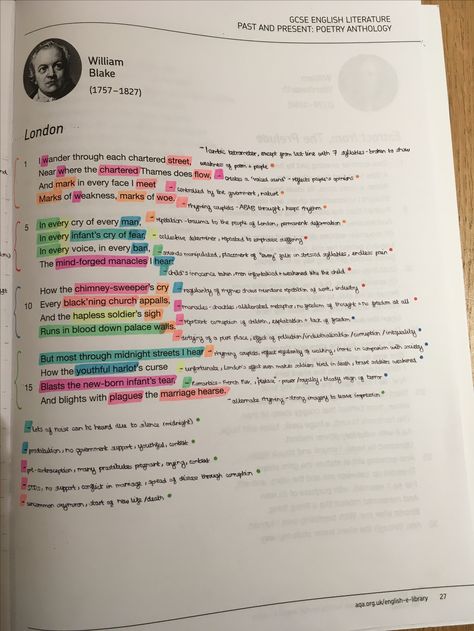 GCSE ENGLISH LITERATURE
PAST AND PRESENT: POETRY ANTHOLOGY
William
Blake
(1757–1827)
London
1 I wander through each chartered street,
- Iambic tetrameter, except from last line with 7 syllables - broken to show
weakness of poem + people
Near where the chartered Thames does flow,
- creates a
- reflects people's opinions
And mark in every face I meet
- controlled by the government, nature
Marks of weakness, marks of woe.
- rhyming couplets - ABAB throughout, keeps rhythm
5 In every cry of every man,
- repetition - trauma to the people of London, permanent deformation
In every infant's cry of fear,
determiner, repeated to emphasise suffering
In every voice, in every ban,
- sounds manipulated, placement of "every" falls on stressed syllables, endless pain
The mind-forged manacles I hear:
- child's innocence taken, men imprisoned + weakened like the child
How the chimney-sweeper's cry
- regularity of rhymes shows mundane repetition of work, industry
10 Every black'ning church appalls,
- manacles - shackles - alliterated metaphor, no freedom of thought = no freedom at all
And the hapless soldier's sigh
- represent corruption of children, exploitation + lack of freedom
Runs in blood down palace walls.
- of a pure place, effect of pollution/industrialisation/corruption/inequality
But most through midnight streets I hear
- rhyming couplets, reflect regularity of walking, ironic in comparison with society
How the youthful harlot's curse
- unfortunate, London's effect even makes soldiers tired in death, brave soldiers weakened
15 Blasts the new-born infant's tear,
- Romantics - French Rev, 'palace' - power/royalty, bloody reign of terror
And blights with plagues the marriage hearse.
- alternate rhyming - strong imagery to leave impression
- lots of noise can be heard due to silence (midnight)
- prostitution, no government support, youthful, contrast
- pre-contraception, many prostitutes pregnant, crying, contrast
- STDs, no support, conflict in marriage, spread of disease through corruption
- uncommon oxymoron, start of new life/death
aqa.org.uk/english-e-library
27